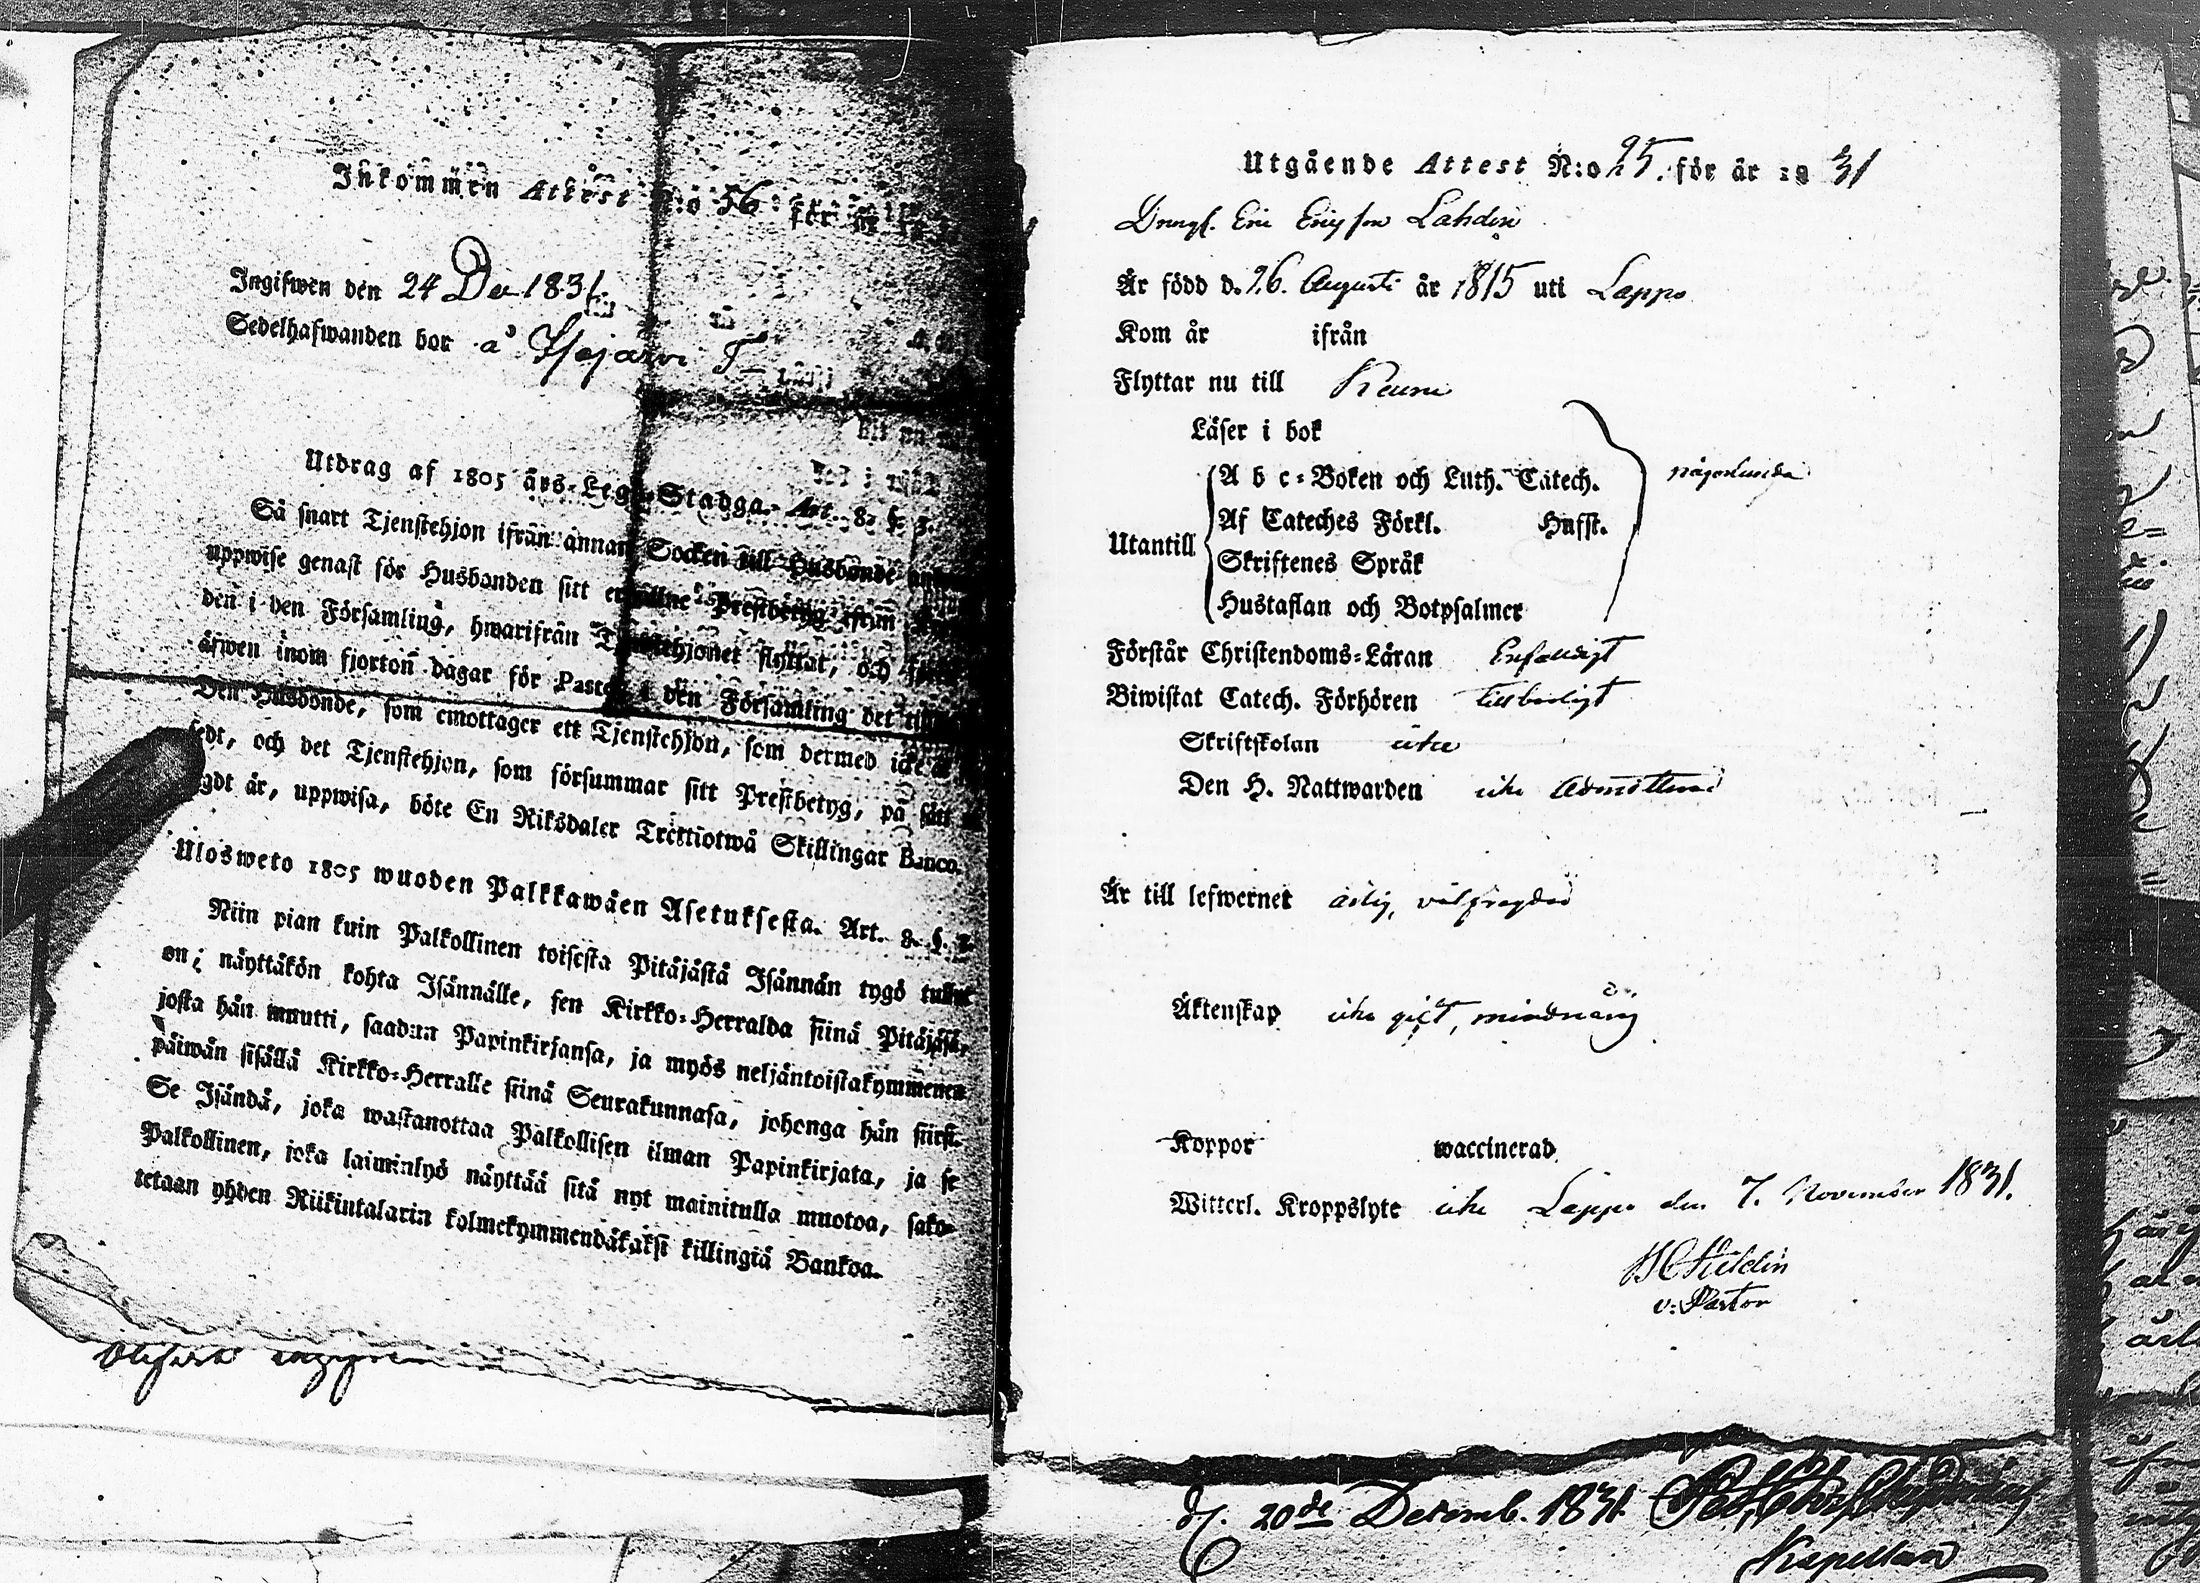 Inkommen Attest N:o 56 för år
Ingifwen den 24 Dec 1831.
Sedelhafwanden bor å
Utdrag af 1805 års Lego-Stadga. Art. 8. §. 3.
Så snart Tjenstehjon ifrån annan Socken till Husbonde
uppwise genast för Husbonden sitt erhållne Prestbetyg ifrån
den i den Församling, hwarifrån Tjenstehjonet flyttat, och
äfwen inom fjorton dagar för Pastor i den Församling det
Den Husbonde, som emottager ett Tjenstehjon, som dermed icke är
sedt, och det Tjenstehjon, som försummar sitt Prestbetyg, på sätt
sagdt är, uppwisa, böte En Riksdaler Trettiotwå Skillingar Banco.
Ulosweto 1805 wuoden Palkkawäen Asetuksesta. Art. 8. §. 3.
Niin pian kuin Palkollinen toisesta Pitäjästä Isännän tygö tullut
on; näyttäkön kohta Isännälle, sen Kirkko-Herralda siinä Pitäjäsä,
josta hän muutti, saadun Papinkirjansa, ja myös neljäntoistakymmenen
päiwän sisällä Kirkko-Herralle siinä Seurakunnasa, johonga hän siirsi.
Se Isändä, joka wastanottaa Palkollisen ilman Papinkirjata, ja se
Palkollinen, joka laiminlyö näyttää sitä nyt mainitulla muotoa, sako-
tetaan yhden Riikintalarin kolmekymmendäkaksi killingiä Bankoa.
Utgående Attest N:o 25. för år 18 31
Drengl. Eric Ericsson Lahdin
Är född d. 26. Augusti år 1815 uti Lappo
Kom år ifrån
Flyttar nu till Keuru
Läser i bok
A b c-Boken och Luth. Catech. någorlunda
Af Cateches Förkl. Husst.
Utantill
Skriftenes Språk
Hustaflan och Botpsalmer
Förstår Christendoms-Läran Enfaldigt
Biwistat Catech. Förhören tillbörligt
Skriftskolan icke
Den H. Nattwarden icke Admitterad
Är till lefwernet ärlig, välfrejdad
Äktenskap icke gift, mindreårig
Koppor waccinerad
Witterl. Kroppslyte icke Lappo den 7. November 1831.
v: Pastor
d. 20de Decemb. 1831.
Kapellan